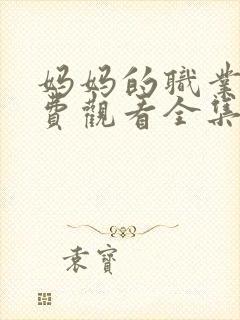 妈妈的職業
費觀看全集
袁寶